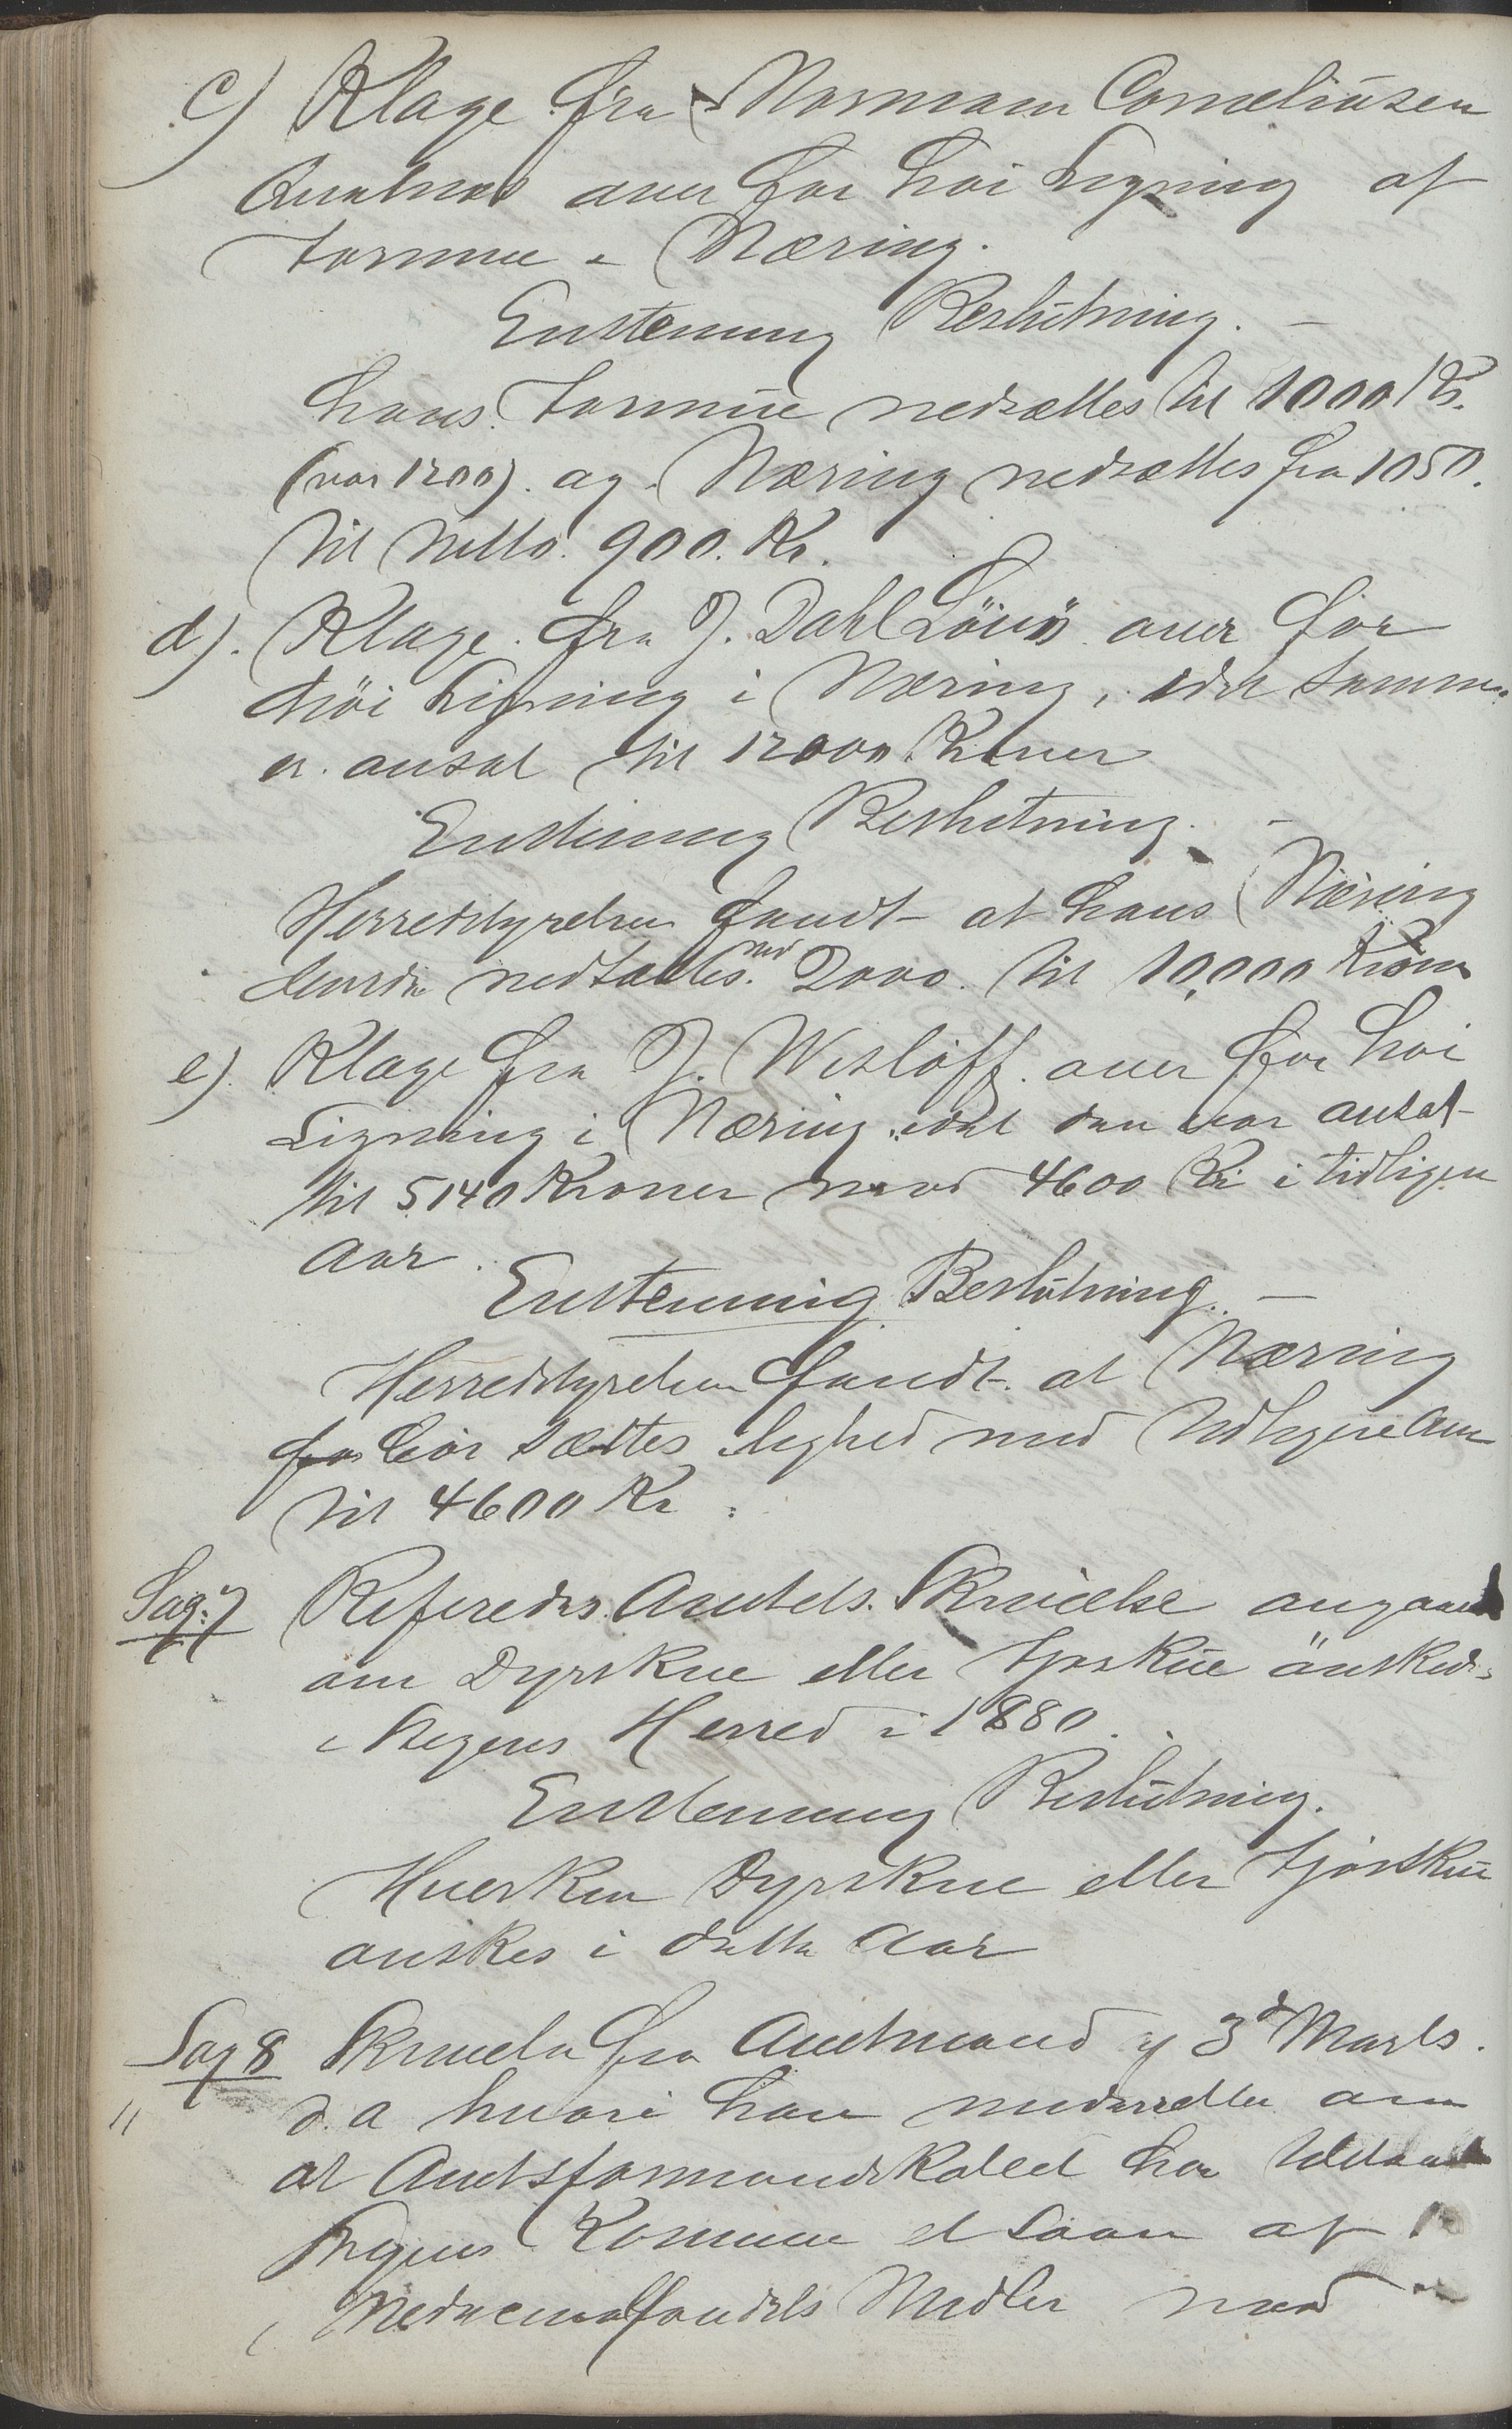 c) Klage fra Normann Corneliusen
over for høi Ligning af
Formue & Næring.
Enstemmig Beslutning. –
hans Formue nedsættes til 1000 Kr.
(var 1200). og Næring nedsættes fra 1050.
til netto. 900. Kr.
d). Klage fra J. Dahl over for
høi Ligning i Næring, idet samme
er ansat til 12000 Kroner
Enstemmig Beslutning. –
Herredstyrelsen fandt at hans Næring
burde nedsættes med 2000. til 10,000 Kroner
e). Klage fra J. Wisløff. over for høi
Ligning i Næring idet den var ansat
til 5140 Kroner mod 4600 Kr i tidligere
Aar.
Enstemmig Beslutning. –
Herredstyrelsen fandt at Næring
for bør sættes i lighed med tidligere Aar
til 4600 Kr.
Sag: 7 Referedes Amtets Skrivelse angaaende
om Dyrskue eller Fjøsskue ønskedes
i Hegens Herred i 1880.
Enstemmig Beslutning.
Hverken Dyrskue eller Fjøsskue
ønskes i dette Aar
Sag 8 Skrivelse fra Amtmand af 3d Marts.
" d. a hvori han meddeler om
at Amtsformandskabet har tilstaaet
Hegens Kommune et Laan af
Medicinalfondets Midler med